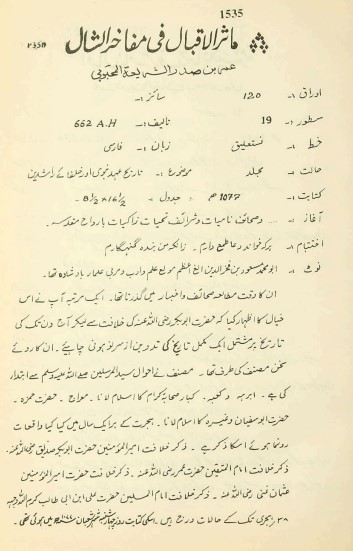 1535
مآثر الاقبال فی مفاخر الشال
۲۳۵۸
عمر بن صدر الشریعۃ المحبوبی
اوراق :۔ 120 سائز :۔
سطور :۔ 19 تالیف :۔ 662 A.H
خط :۔ نستعلیق زبان :۔ فارسی
حالت :۔ مجلد موضوع :۔ تاریخ عہد نبوی اور خلفاء راشدین
کتابت :۔ 1077 ھ جدول :۔ 8 1/2 x 16 1/2
آغاز :۔ ۔۔۔ وصحائف نامیات وشرائف تحیات زاکیات بارواح مقدسہ۔
اختتام :۔ ہر کہ خواند دعا طمع دارم ۔ زانکہ من بندہ گنہگارم
نوٹ :۔ ابو محمد مسعود بن فخر الدین الغ اعظم مربیع علم وادب ومربی علماء بادشاہ تھا۔
ان کا وقت مطالعہ صحائف واخبار میں گذرتا تھا۔ ایک مرتبہ آپ نے اس
خیال کا اظہار کیا کہ حضرت ابوبکر رضی اللہ عنہ کی خلافت سے لیکر آج دن تک کی
تاریخ پر مشتمل ایک مکمل تاریخ کی تدوین از سر نو ہونی چاہیئے۔ ان کا روئے
سخن مصنف کی طرف تھا۔ مصنف نے احوال سید المرسلین صلے اللہ علیہ وسلم سے ابتداء
کی ہے۔ ابرہہ وکعبہ۔ کبار صحابہ کرام کا اسلام لانا۔ معراج۔ حضرت حمزہ۔
حضرت ابوسفیان وغیرہ کا اسلام لانا۔ ہجرت کے ہر ایک سال میں کیا کیا واقعات
رونما ہوئے اسکا ذکر ہے۔ ذکر خلافت امیر المؤمنین حضرت ابوبکر صدیق رضی اللہ عنہ۔
ذکر خلافت امام المتقین حضرت عمر رضی اللہ عنہ۔ ذکر خلافت حضرت امیر المؤمنین
عثمان غنی رضی اللہ عنہ۔ ذکر خلافت امام المسلمین حضرت علی ابن ابی طالب کرم اللہ وجہہ
۳۸ ہجری تک کے حالات درج ہیں۔ اسکی کتابت روز چہارشنبہ میں ہوئی تھی۔